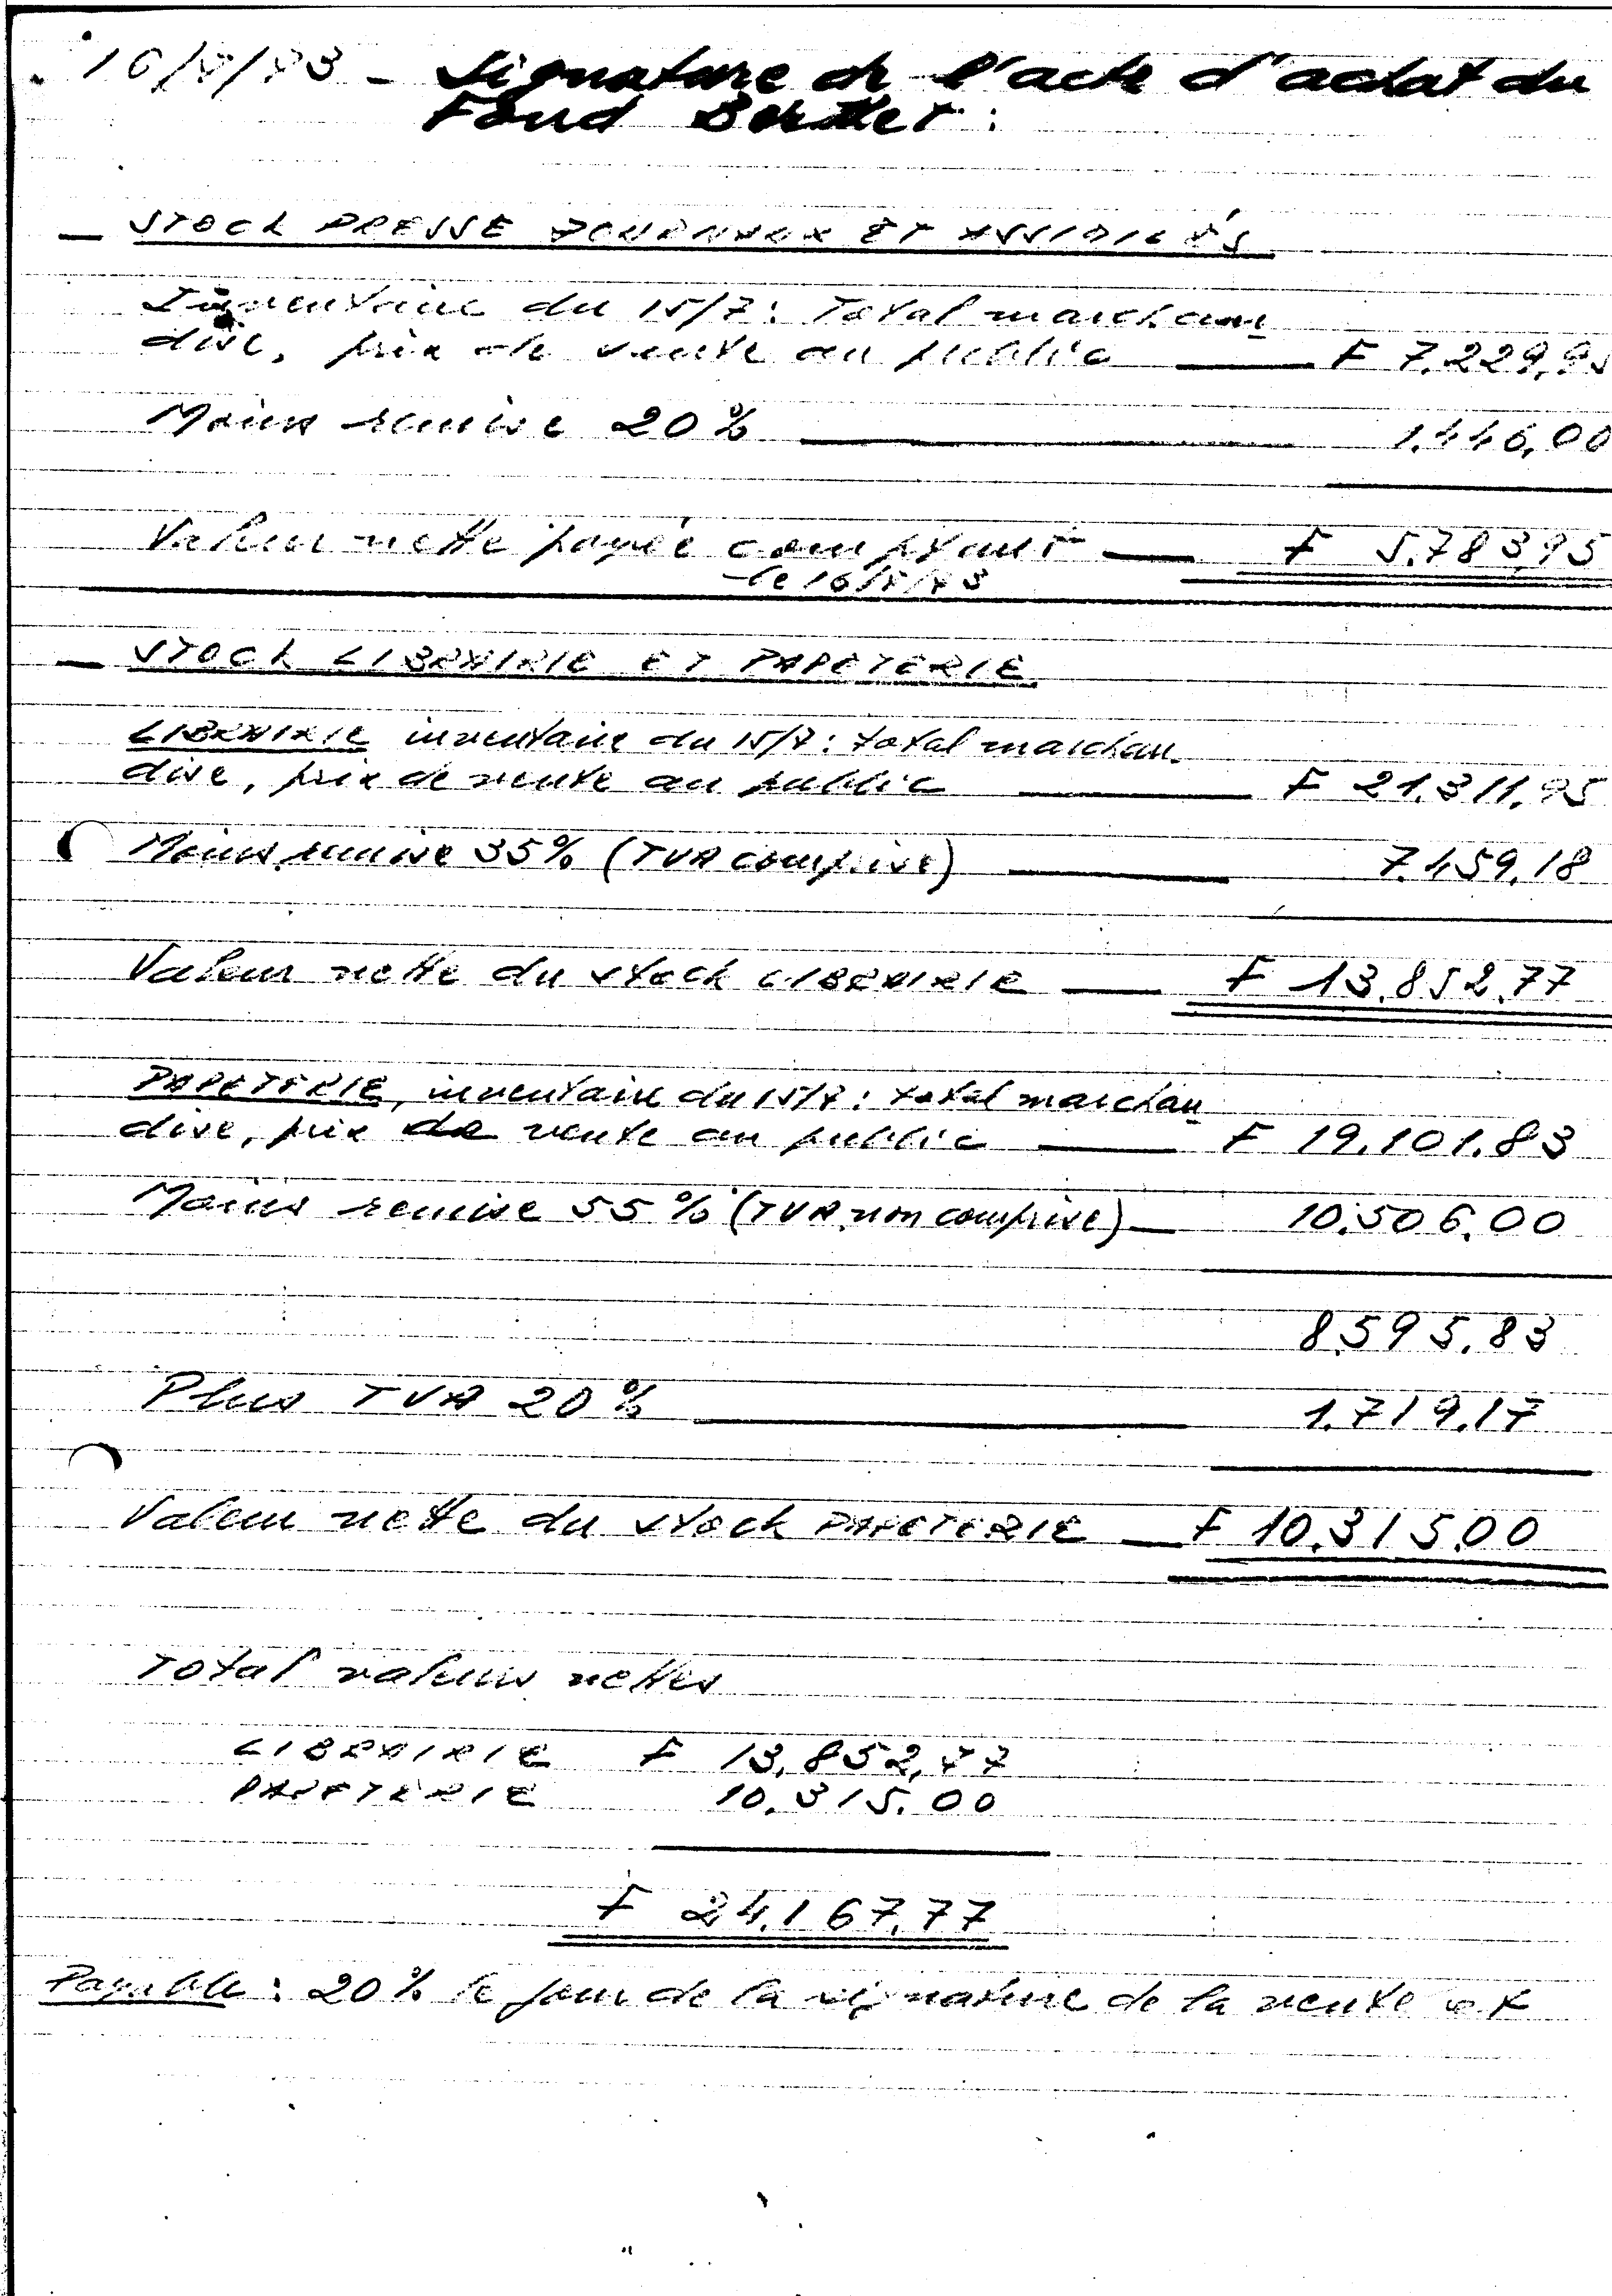 16/7/73 - Signature de l'acte d'achat du
Fond
- STOCK PRESSE JOURNAUX ET ASSIMILÉS
Inventaire du 15/7: Total marchan
dise, prix de vente au public F 7.229,95
Moins remise 20% 1.446,00
Valeur nette payée comptant F 5.783,95
le 16/7/73
- STOCK LIBRAIRIE ET PAPETERIE
LIBRAIRIE inventaire du 15/7: total marchan-
dise, prix de vente au public F 21.311,95
Moins remise 35% (TVA comprise) 7.459,18
Valeur nette du stock LIBRAIRIE F 13.852,77
PAPETERIE, inventaire du 15/7: total marchan
dise, prix de vente au public F 19.101,83
Moins remise 55% (TVA non comprise) 10.506,00
8.595,83
Plus TVA 20% 1.719,17
Valeur nette du stock PAPETERIE F 10.315,00
Total valeurs nettes
LIBRAIRIE F 13.852,77
PAPETERIE 10.315,00
F 24.167,77
Payable: 20% le jour de la signature de la vente et